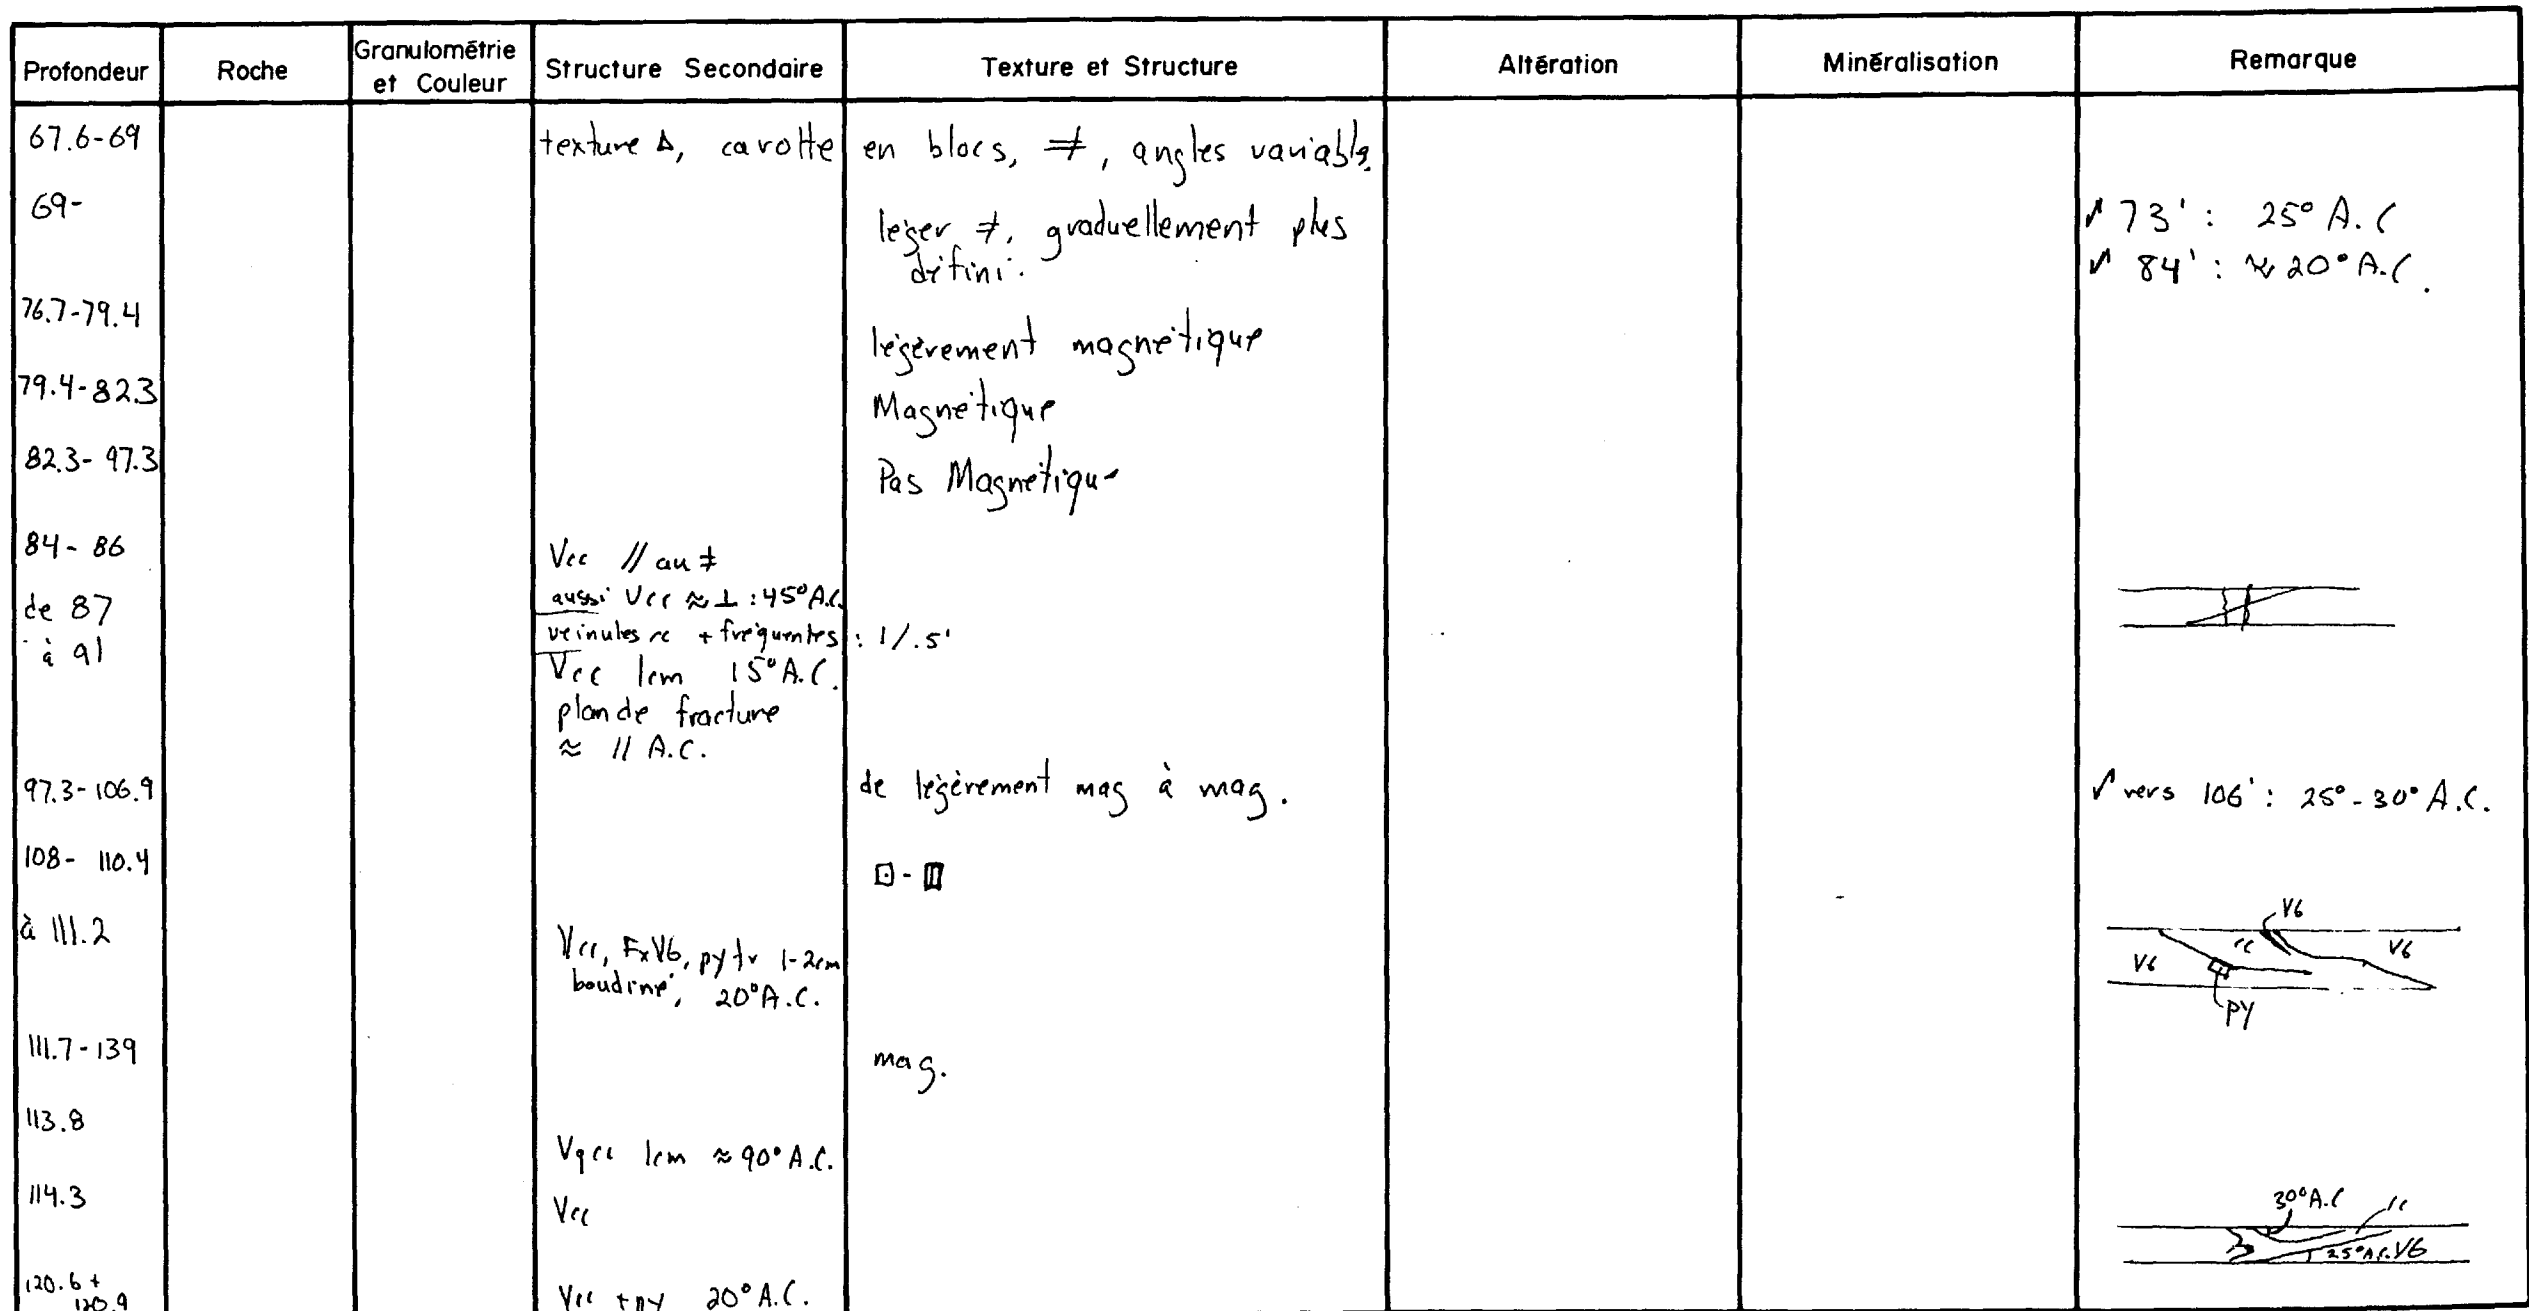 Profondeur Roche Granulométrie et Couleur Structure Secondaire Texture et Structure Altération Minéralisation Remarque
67.6-69 texture Δ, carotte en blocs, ≠, angles variable.
69- léger ≠, graduellement plus défini. 73': 25° A.C
84': ≈ 20° A.C.
76.7-79.4 légèrement magnétique
79.4-82.3 Magnétique
82.3-97.3 Pas Magnétique
84-86 Vcc // au ≠
aussi Vcc ≈ ⊥ : 45° A.C.
de 87 à 91 veinules cc + fréquentes : 1/.5'
Vcc 1cm 15° A.C.
plan de fracture
≈ // A.C.
97.3-106.9 de légèrement mag à mag. vers 106': 25°-30° A.C.
108-110.4
à 111.2 Vcc, FxV6, py tr 1-2cm
boudiné, 20° A.C.
V6
V6 cc V6
py
111.7-139 mag.
113.8 Vqcc 1cm ≈ 90° A.C.
114.3 Vcc
30° A.C cc
25° A.C. V6
120.6 +
120.9 Vcc + py 20° A.C.